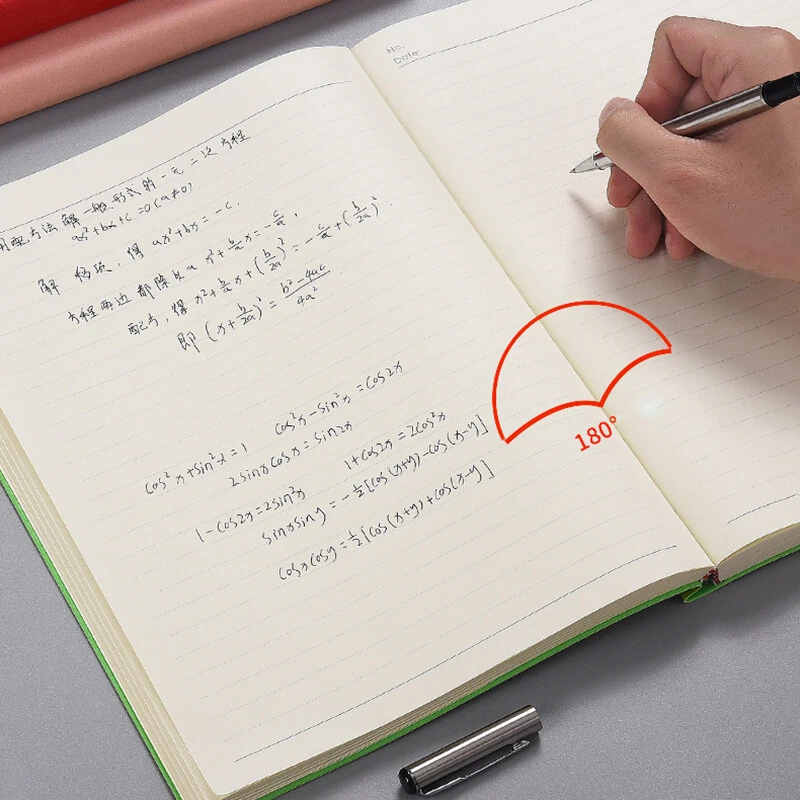 用配方法解一般形式的一元二次方程
ax²+bx+c=0(a≠0)
解 移项，得 ax²+bx=-c.
方程两边都除以a x²+b/a x=-c/a,
配方，得 x²+b/a x+(b/2a)²=-c/a+(b/2a)².
即 (x+b/2a)²=b²-4ac/4a².
cos²x+sin²x=1 cos²x-sin²x=cos2x
2sinxcosx=sin2x
1-cos2x=2sin²x 1+cos2x=2cos²x
sinxsiny=-1/2[cos(x+y)-cos(x-y)]
cosxcosy=1/2[cos(x+y)+cos(x-y)]
No.
Date
180°